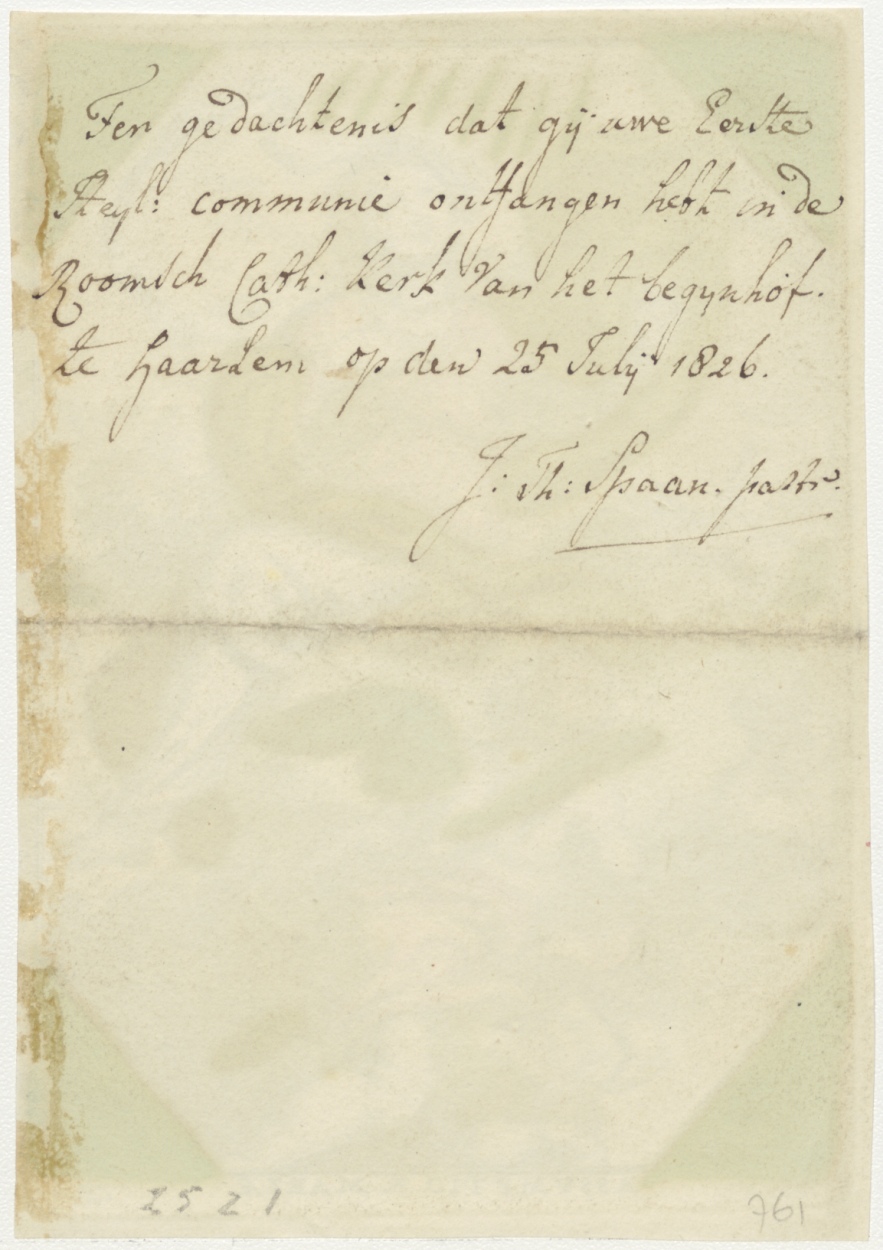 Ter gedachtenis dat gij uwe Eerste
Heyl: communie ontfangen hebt in de
Roomsch Cath: Kerk van het begynhof.
te haarlem op den 25 July 1826.
J: Th: Spaan. pastr.
2521
761